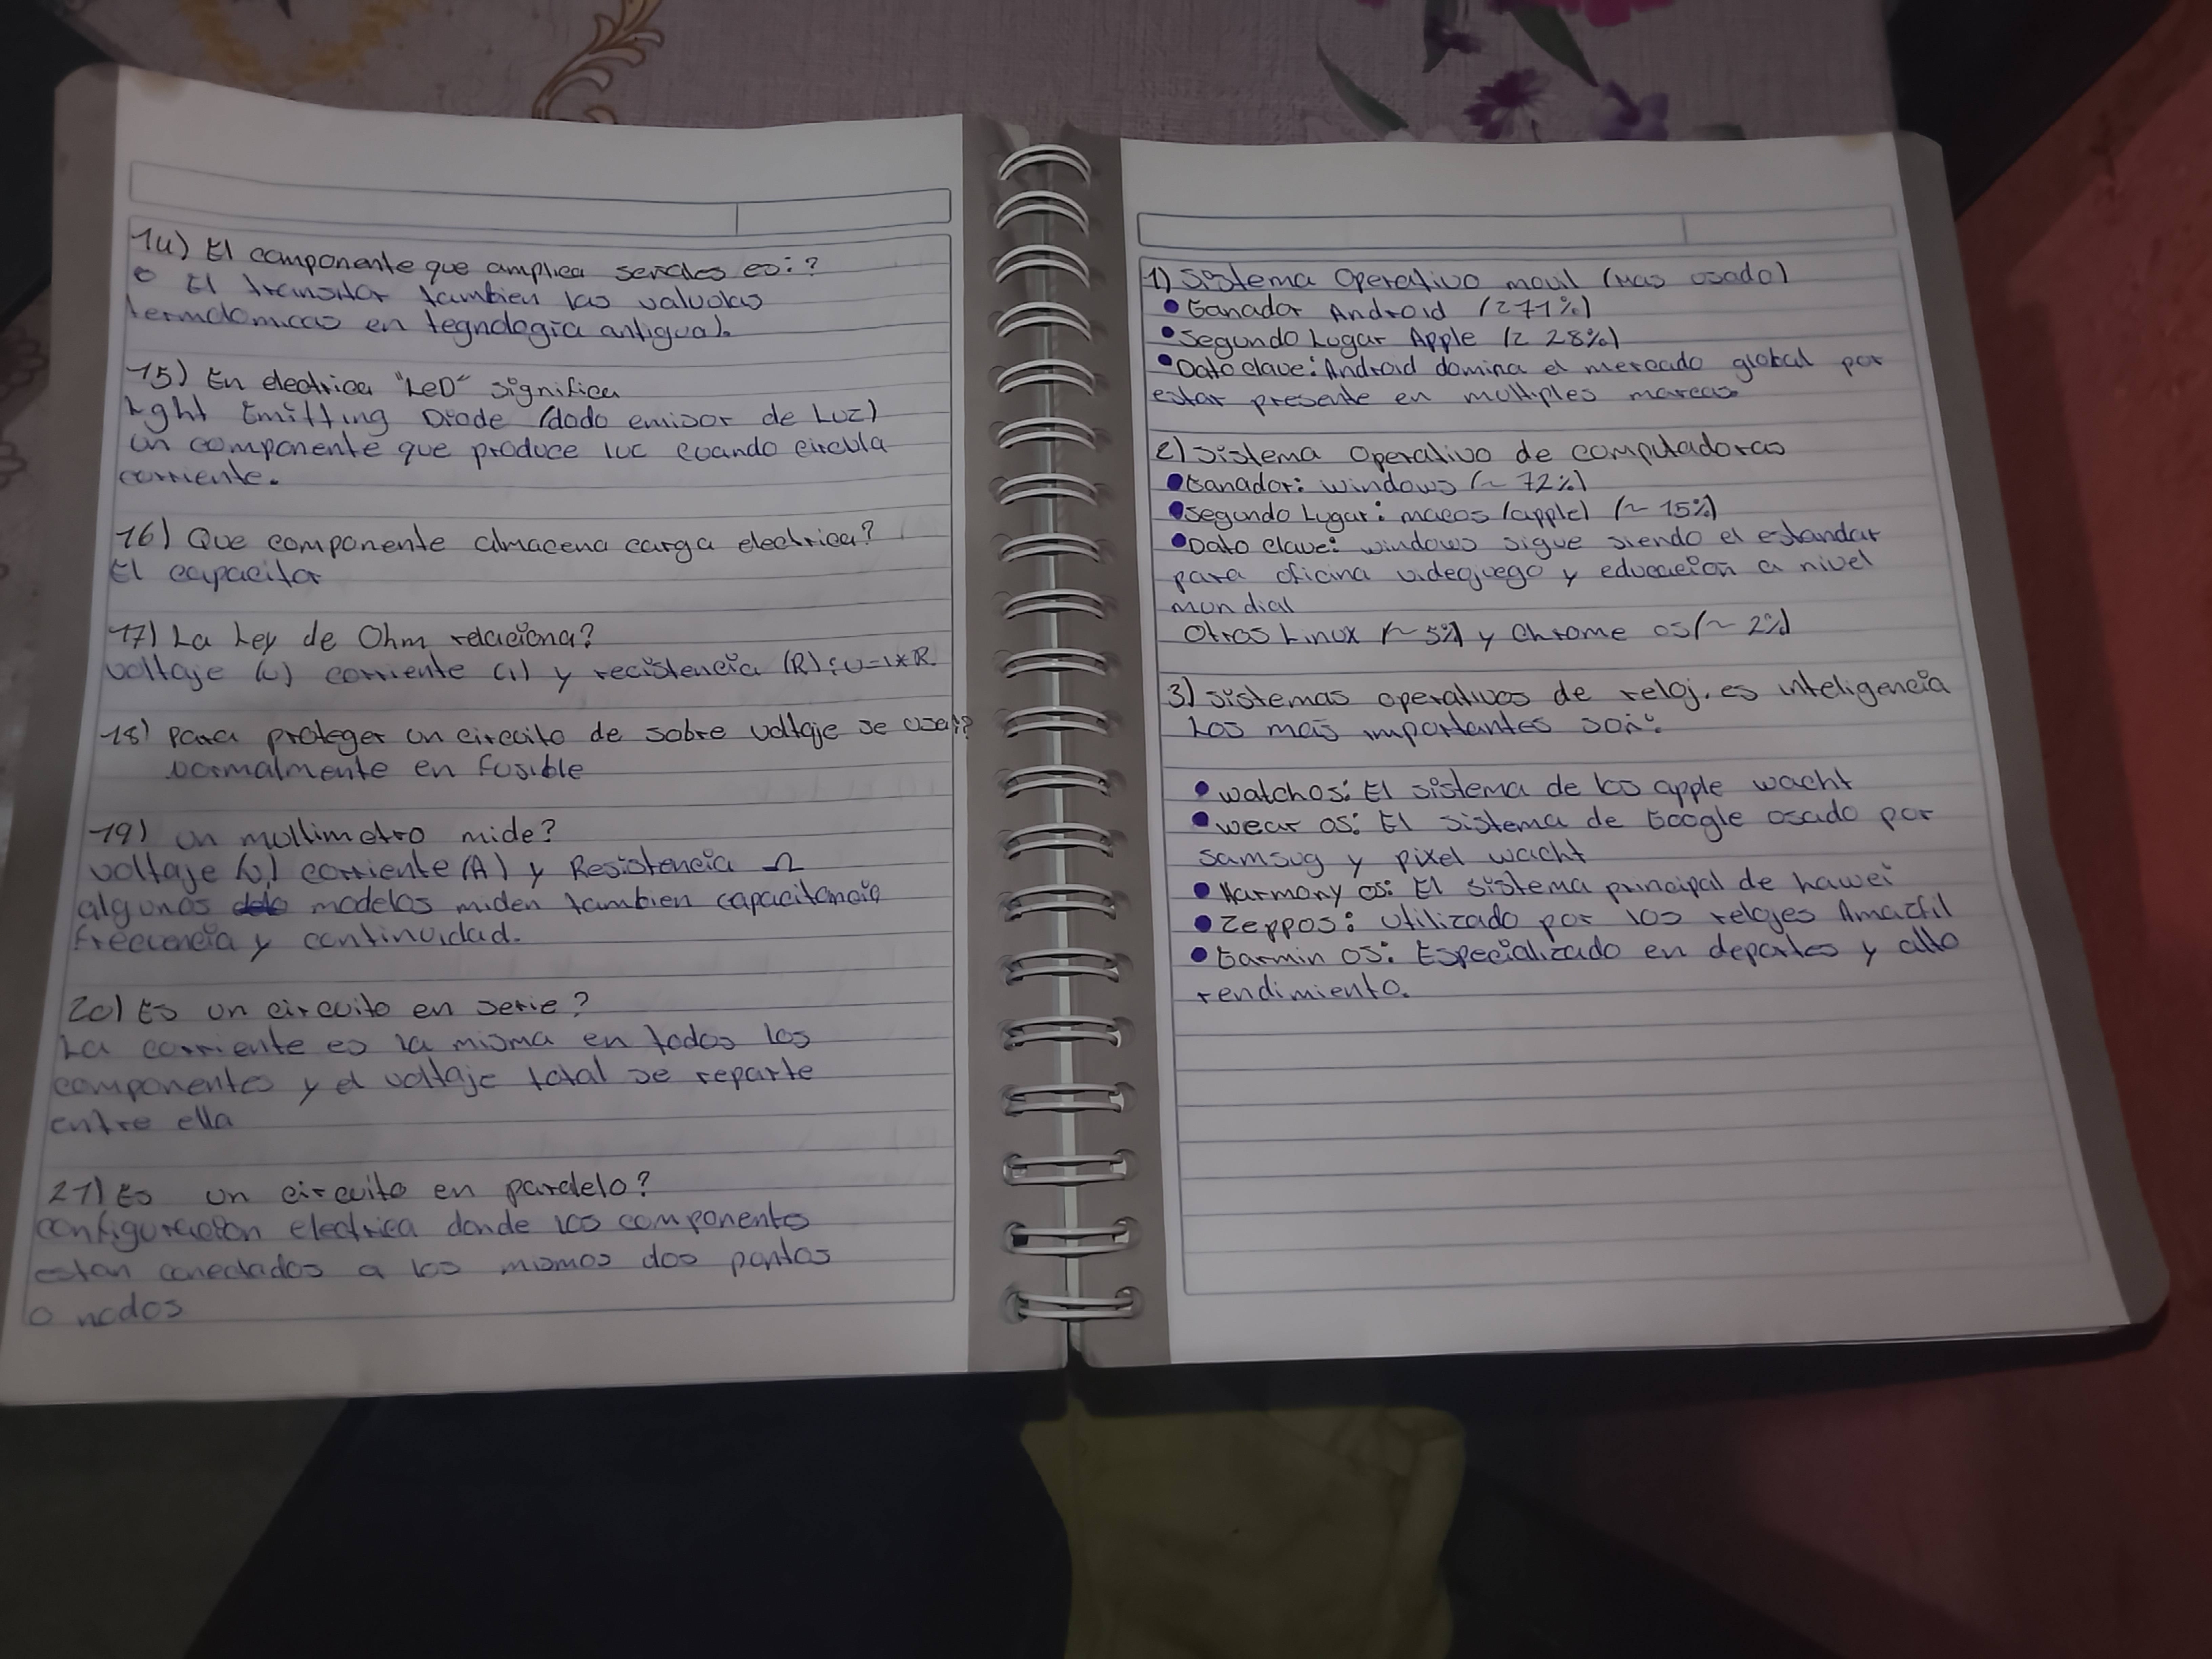 14) El componente que amplica senales es:?
o El transitor tambien las valvolas
termdomicas en tegnologia antigua).
15) En electrica "LeD" significa
Lght Emitting Diode (dodo emisor de Luz)
un componente que produce luc cuando circula
corriente.
16) Que componente almacena carga electrica?
El capacitor
17) La Ley de Ohm relaciona?
voltaje (v) corriente (i) y recistencia (R): v=i*R.
18) Para proteger un circuito de sobre voltaje se usa:?
normalmente en fusible
19) un multimetro mide?
voltaje (v) corriente (A) y Resistencia Ω
algunos modelos miden tambien capacitancia
frecuencia y continuidad.
20) Es un circuito en serie?
La corriente es la misma en todos los
componentes y el voltaje total se reparte
entre ella
21) Es un circuito en paralelo?
configuracion electrica donde los componento
estan conectados a los mismos dos pontos
o nodos
1) Sistema Operativo movil (mas usado)
• Ganador Android (≥71%)
• Segundo Lugar Apple (≥ 28%)
• Dato clave: Android domina el mercado global por
estar presente en multiples marcas
2) Sistema Operativo de computadoras
• Ganador: windows (~ 72%)
• Segundo Lugar: macos (apple) (~ 15%)
• Dato clave: windows sigue siendo el estandar
para oficina videojuego y educacion a nivel
mundial
Otros Linux (~5%) y Chrome os (~ 2%)
3) sistemas operativos de reloj.es inteligencia
Los mas importantes son:
• watchos: El sistema de los apple wacht
• wear os: El sistema de Google osado por
samsug y pixel wacht
• Harmony os: El sistema principal de hawei
• Zeppos: utilizado por los relojes Amazfil
• Garmin OS: Especializado en deportes y alto
rendimiento.